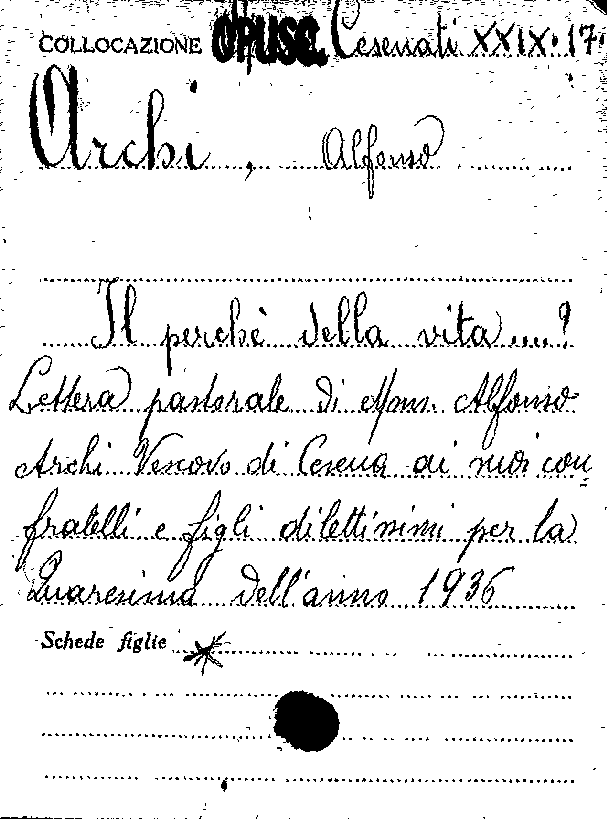 COLLOCAZIONE OPUSC. Cesenati XXIX. 17.
Archi, Alfonso
Il perchè della vita....?
Lettera pastorale di Mons. Alfonso
Archi Vescovo di Cesena ai suoi con
fratelli e figli dilettissimi per la
Quaresima dell'anno 1936
Schede figlie